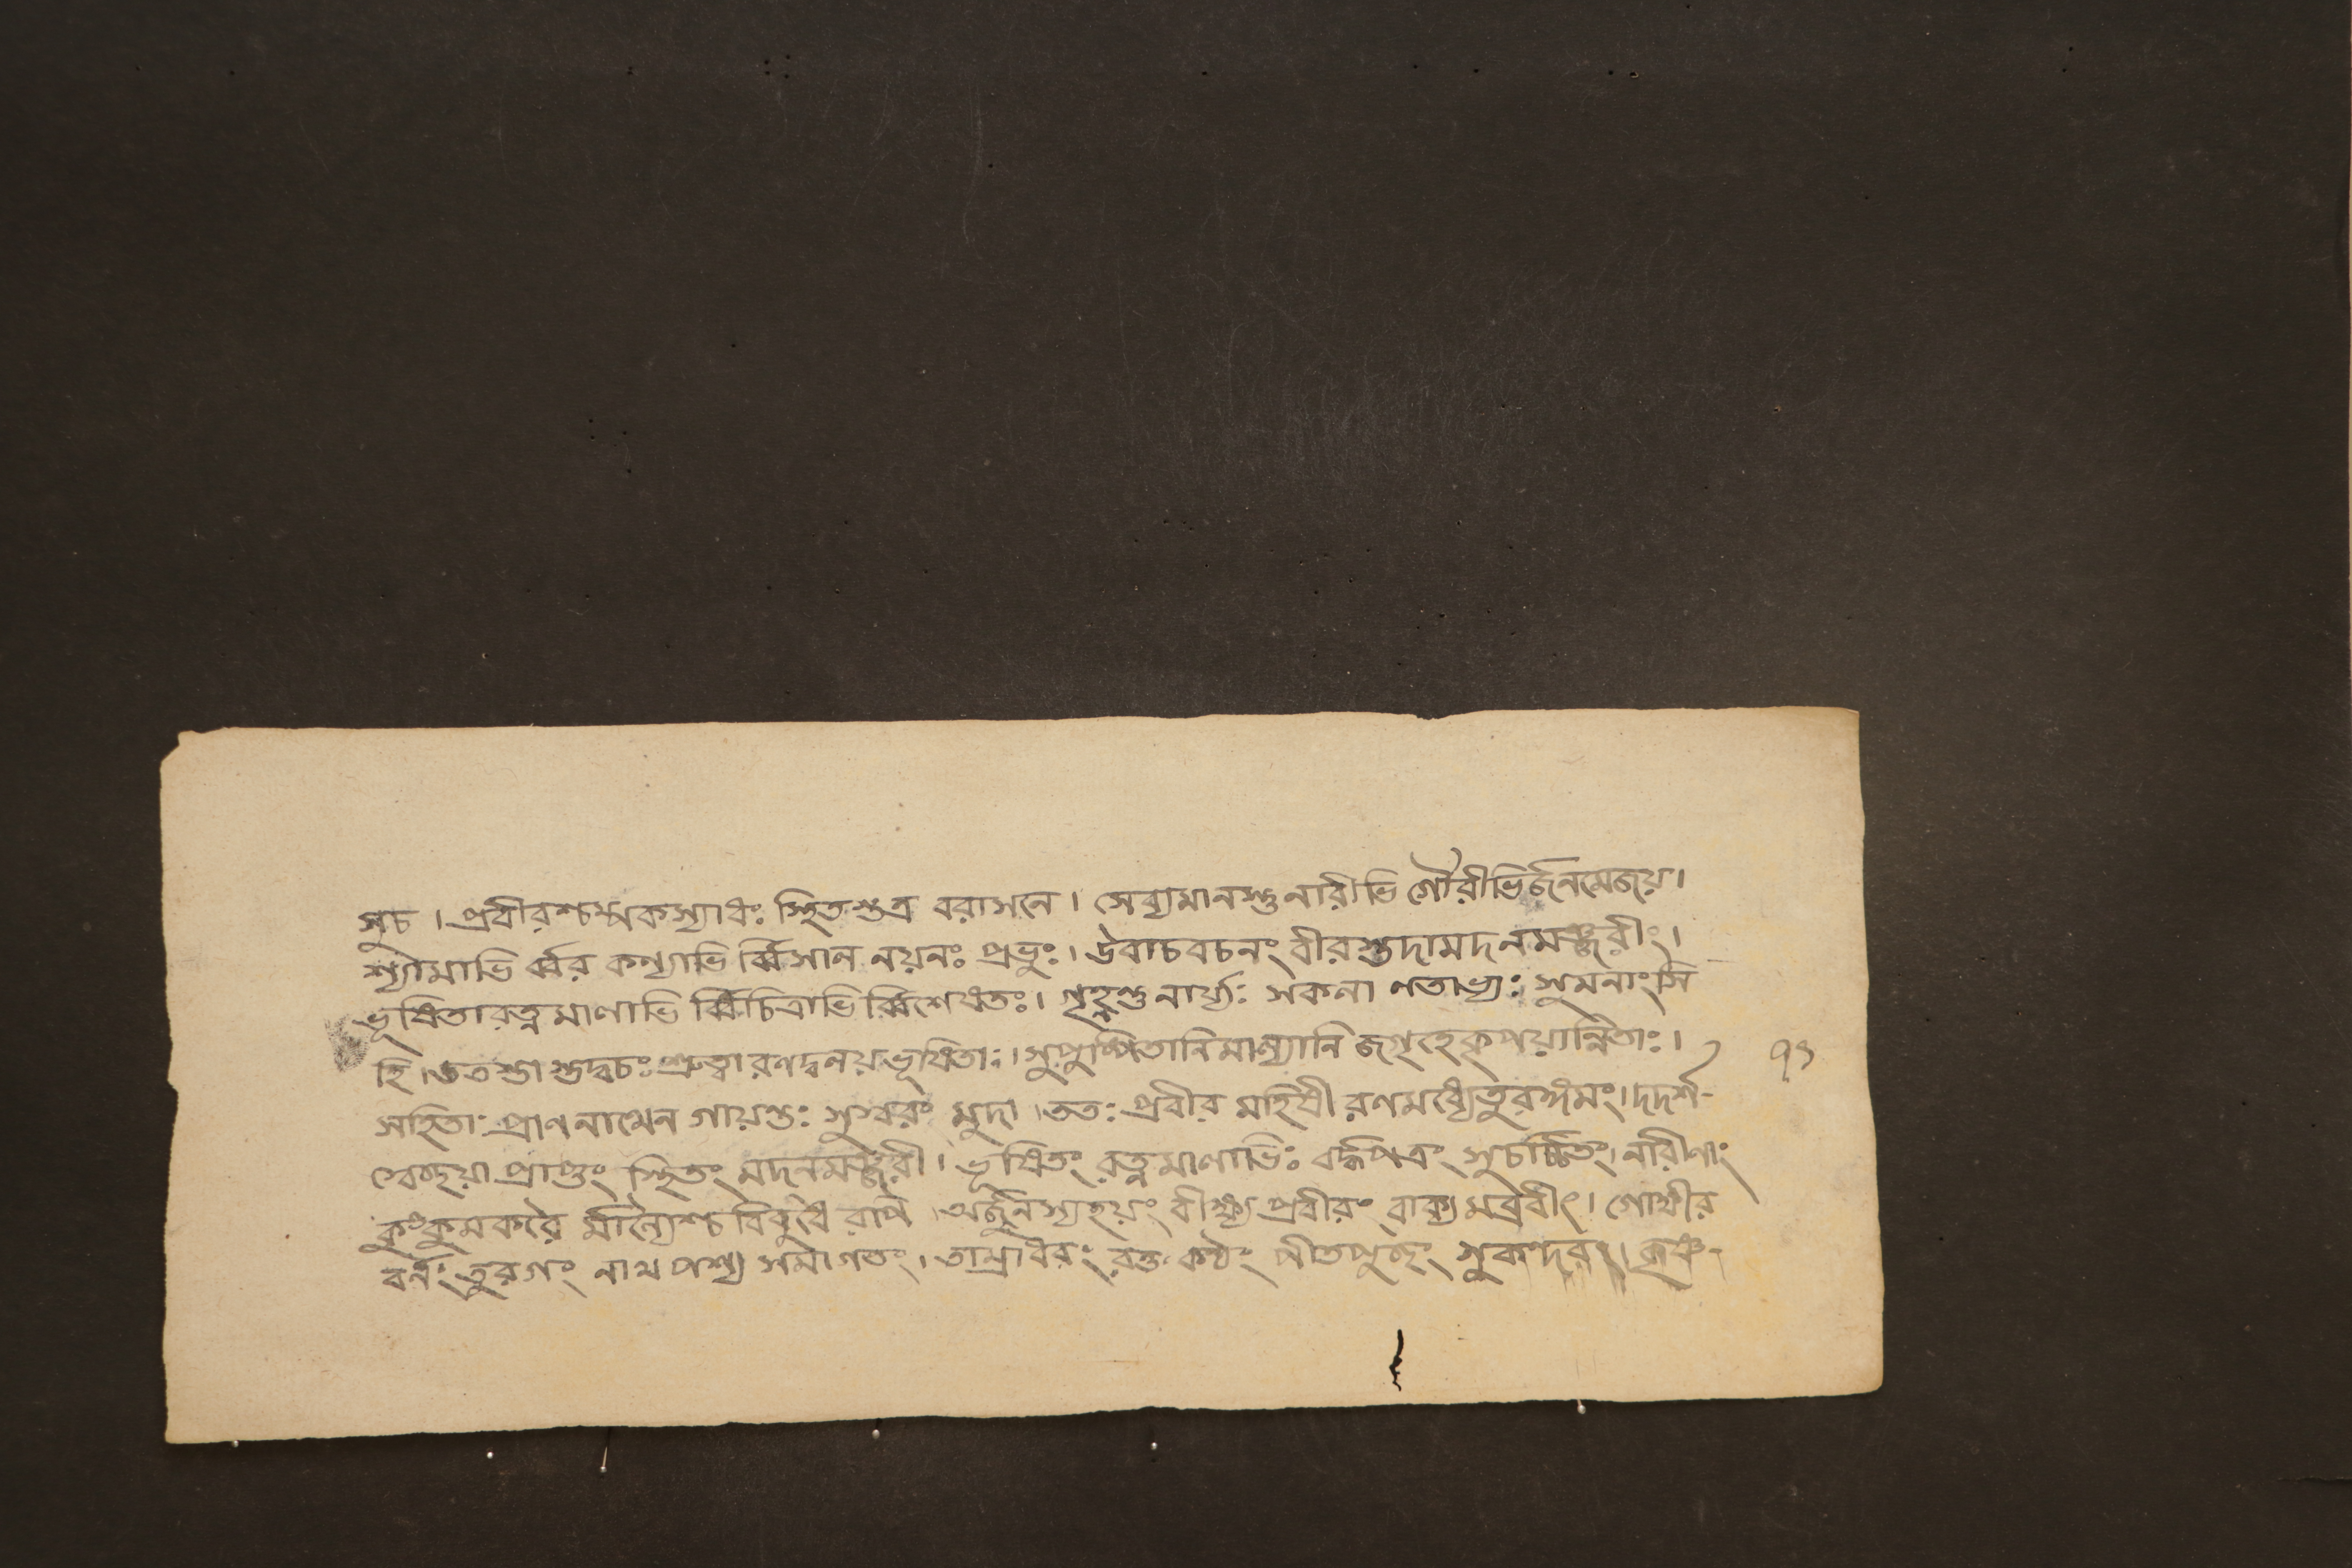 সুচ । প্রবীরশ্চম্পকস্যাধঃ স্থিতস্তত্র বরাসনে । সেব্যমানস্তু নারীভি র্গৌরীভির্জনমেজয় ।
শ্যামাভি র্ব্বর কন্যাভি র্ব্বিসাল নয়নঃ প্রভুঃ । উবাচবচনং বীরস্তদামদনমঞ্জরীং ।
ভূষিতারত্নমালাভি র্ব্বিচিত্রাভি র্ব্বিশেষতঃ । গৃহ্নন্তু নার্য্যঃ সকলা লতাভ্যঃ সুমনাংসি
হি । ততস্তা স্তদ্বচঃ শ্রুত্বা রণদ্বলয়ভূষিতাঃ । সুপুষ্পিতানিমাল্যানি জগৃহেকৃপয়ান্বিতাঃ । ৭১
সহিতাঃ প্রাণনাথেন গায়ন্ত্যঃ সুস্বরং মুদা । ততঃ প্রবীর মহিষী রণমধ্যেতুরঙ্গমং । দদর্শ-
স্বেচ্ছয়া প্রাপ্তং স্থিতং মদনমঞ্জরী । ভূষিতং রত্নমালাভিঃ বদ্ধপত্রং সুচর্চ্চিতং । নারীণাং
কুংকুমকরৈ র্মাল্যৈশ্চ বিবুধৈ রপি । অর্জুনস্যহয়ং বীক্ষ্য প্রবীরং বাক্যমব্রবীৎ । গোক্ষীর
বর্ণং তুরগং নাথ পশ্য সমাগতং । তাম্রাধরং রক্ত কণ্ঠং পীতপুচ্ছং সুকন্দরং ।